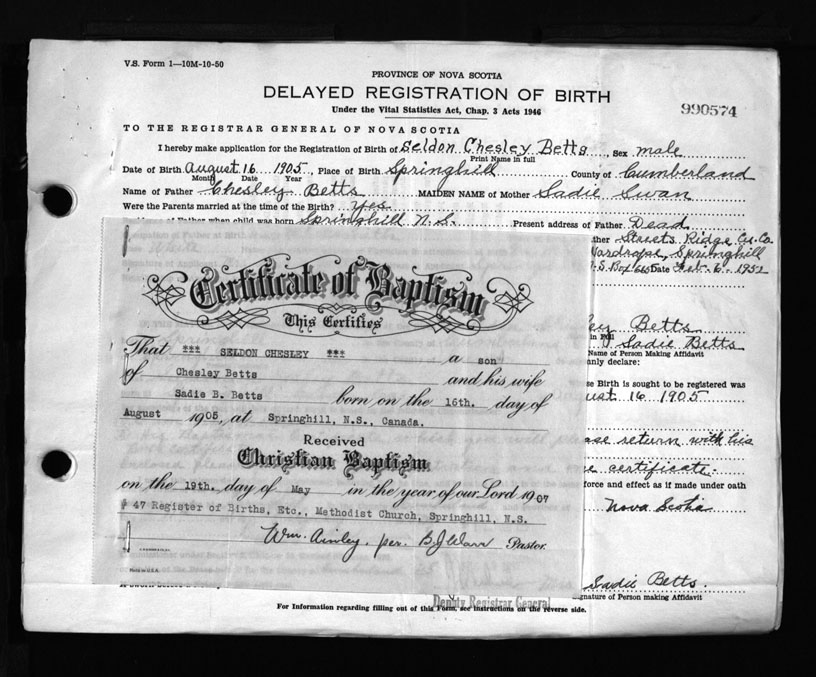 V.S. Form 1—10M-10-50
PROVINCE OF NOVA SCOTIA
DELAYED REGISTRATION OF BIRTH
990574
Under the Vital Statistics Act, Chap. 3 Acts 1946
TO THE REGISTRAR GENERAL OF NOVA SCOTIA
I hereby make application for the Registration of Birth of Seldon Chesley Betts, Sex male
Print Name in full
Date of Birth August 16 1905, Place of Birth Springhill County of Cumberland
Month Date Year
Name of Father Chesley Betts MAIDEN NAME of Mother Sadie Swan
Were the Parents married at the time of the Birth? Yes
of Father when child was born Springhill N.S. Present address of Father Dead
ther Streets Ridge Cu. Co.
Wardrope, Springhill
Box 665 Date Feb. 6. 1952
Certificate of Baptism
This Certifies
That *** SELDON CHESLEY *** a son
of Chesley Betts and his wife
Sadie B. Betts born on the 16th. day of
August 1905, at Springhill, N.S., Canada.
Received
Christian Baptism
on the 19th. day of May in the year of our Lord 1907
# 47 Register of Births, Etc., Methodist Church, Springhill, N.S.
Wm. Ainley. per. B J Warr Pastor.
ey Betts
in Full
Sadie Betts
Name of Person Making Affidavit
anly declare:
se Birth is sought to be registered was
ust 16 1905
ase return with his
certificate.
force and effect as if made under oath
Nova Scotia
Sadie Betts.
Signature of Person making Affidavit
Deputy Registrar General
For Information regarding filling out of this Form, see instructions on the reverse side.